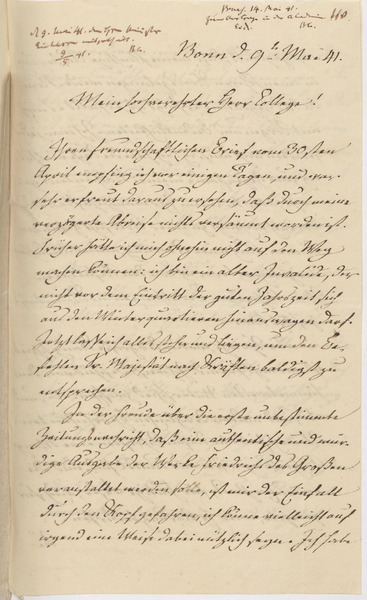 Bonn d. 9t. Mai 41.
Mein hochverehrter Herr College!
Ihren freundschaftlichen Brief vom 30sten
April empfing ich vor einigen Tagen, und war
sehr erfreut daraus zu ersehen, daß durch meine
verzögerte Abreise nichts versäumt worden ist.
Früher hätte ich mich ohnehin nicht auf den Weg
machen können: ich bin ein alter Invalide, der
nicht vor dem Eintritt der guten Jahrszeit sich
aus den Winterquartieren hinauswagen darf.
Jetzt lasse ich alles stehen und liegen, um den Be-
fehlen Sr. Majestät nach Kräften baldigst zu
entsprechen.
In der Freude über die erste unbestimmte
Zeitungsnachricht, daß eine authentische und wür-
dige Ausgabe der Werke Friedrichs des Großen
veranstaltet werden solle, ist mir der Einfall
durch den Kopf gefahren, ich könne vielleicht auf
irgend eine Weise dabei nützlich seyn. Ich habe